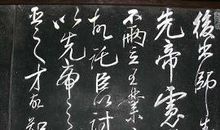 後出師
先帝慮
不兩立王業
故託臣以討
以先帝之
臣之才故知